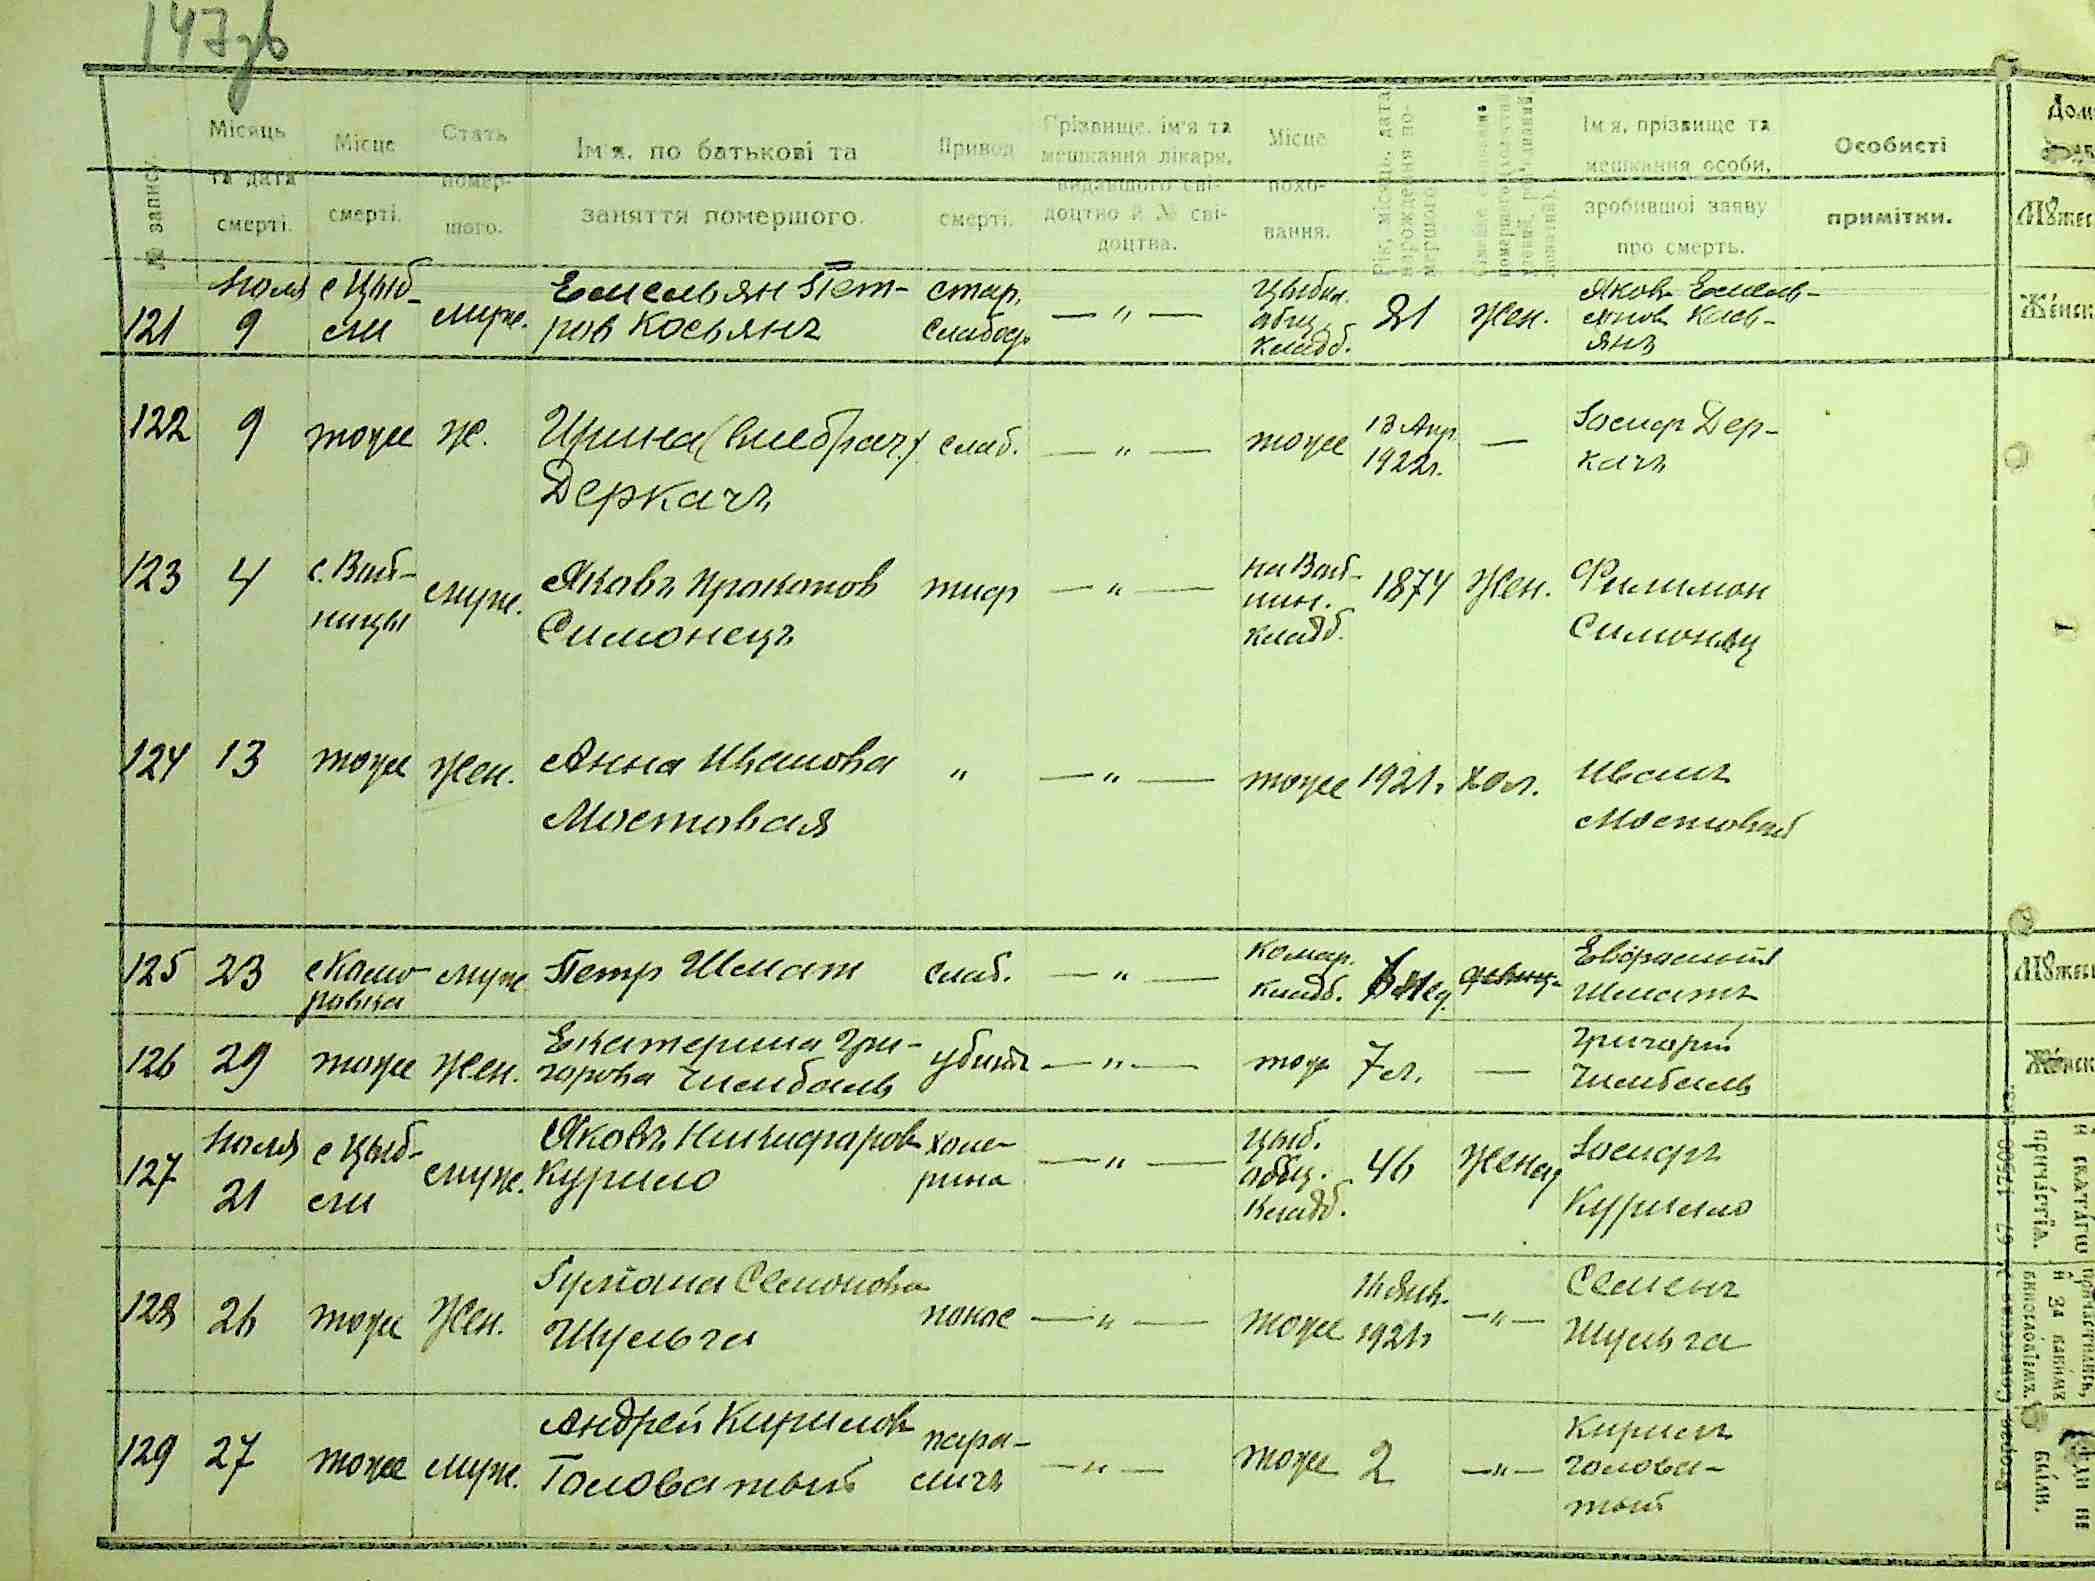 147зв
№ запису.
Місяць та дата смерті.
Місце смерті.
Стать помер- шого.
Ім'я, по батькові та заняття помершого.
Привод смерті.
Прізвище, ім'я та мешкання лікаря, видавшого сві- доцтво й № сві- доцтва.
Місце похо- вання.
Рік, місяць, дата
народження по-
мершого.
Ім'я, прізвище та мешкання особи, зробившої заяву про смерть.
Особисті примітки.
121 Июля 9 с Цыб- ли муж. Емельян Пет- ров Косьянъ стар. слабос. — " — Цыбл. общ. кладб. 81 жен. Яков Емель- янов Кось- янъ
122 9 тоже ж. Ирина (внебрач.) Деркачъ слаб. — " — тоже 13 Апр. 1922г. — Іосиф Дер- качъ
123 4 с. Вой- ницы муж. Яковъ Прокопов Симонецъ тиф — " — на Вой- ниц. кладб. 1874 жен. Филимон Симонец
124 13 тоже жен. Анна Иванова Мостовая " — " — тоже 1921г. хол. Иванъ Мостовой
125 23 с Кома- ровка муж Петр Шмат слаб. — " — комар. кладб. Евфрасий Шматъ
126 29 тоже жен. Екатерина Гри- горова Чимбаль убита — " — тож 7 л. — Григорий Чимбаль
127 Июля 21 с Цыб- ли муж. Яковъ Никифаров Курило холе- рина — " — Цыб. общ. кладб. 46 женат Іосифъ Курило
128 26 тоже жен. Іулиана Семенова Шульга понос — " — тоже 1921г — " — Семенъ Шульга
129 27 тоже муж. Андрей Кирилов Головатый пара- личъ — " — тоже 2 — " — Кирилъ Голова- тый
Мꙋжес
Же́нск
Мꙋжеск
Же́нск